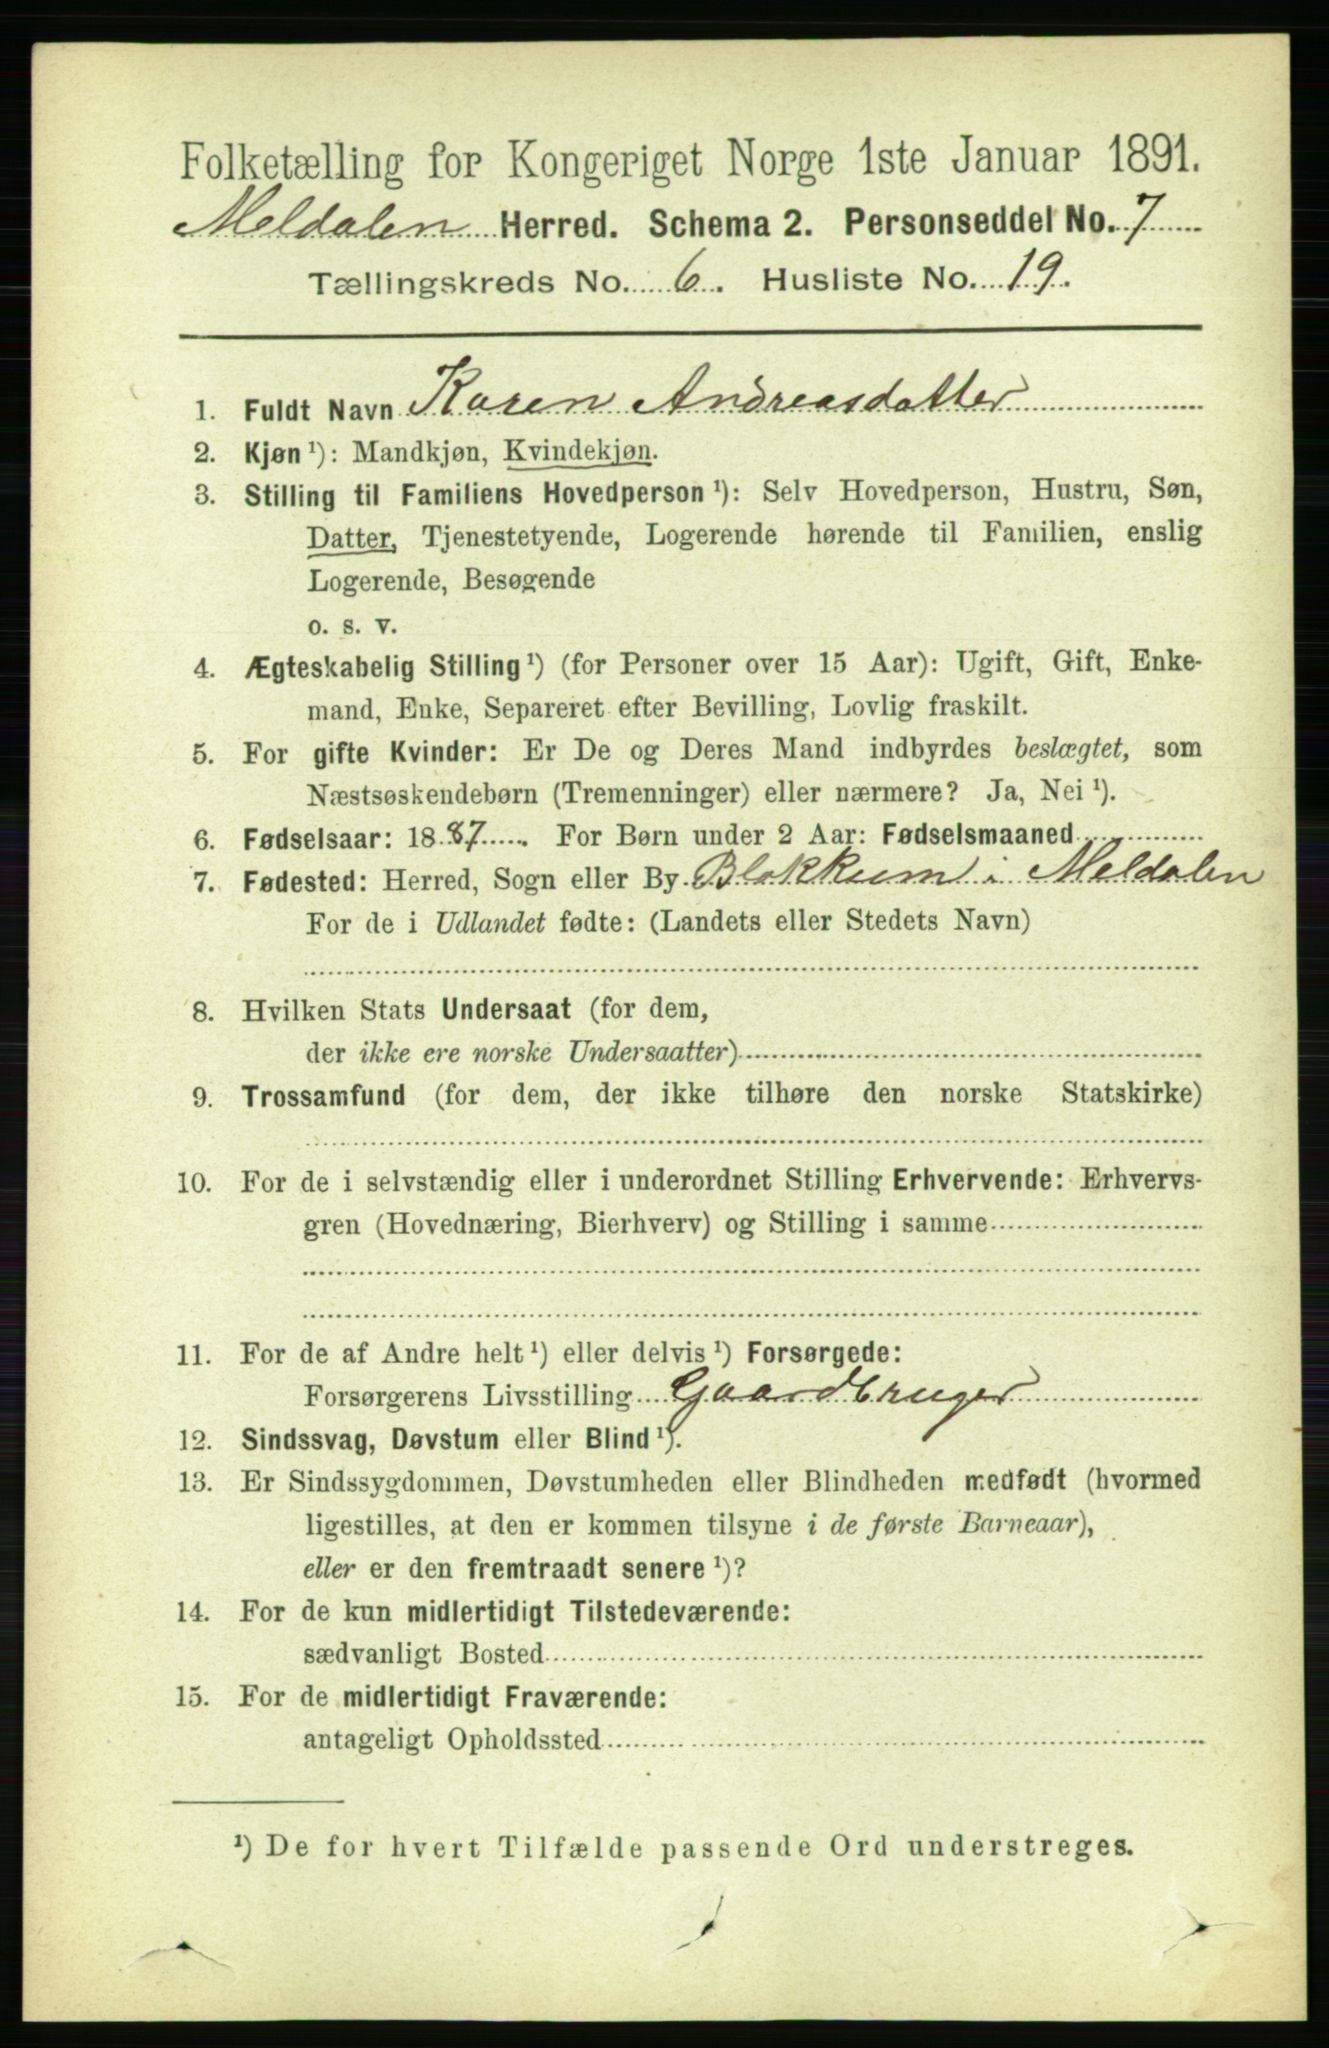 Folketælling for Kongeriget Norge 1ste Januar 1891.
Meldalen Herred. Schema 2. Personseddel No. 7
Tællingskreds No. 6. Husliste No. 19.
1. Fuldt Navn Karen Andreasdatter
2. Kjøn ¹): Mandkjøn, Kvindekjøn.
3. Stilling til Familiens Hovedperson ¹): Selv Hovedperson, Hustru, Søn,
Datter, Tjenestetyende, Logerende hørende til Familien, enslig
Logerende, Besøgende
o. s. v.
4. Ægteskabelig Stilling ¹) (for Personer over 15 Aar): Ugift, Gift, Enke-
mand, Enke, Separeret efter Bevilling, Lovlig fraskilt.
5. For gifte Kvinder: Er De og Deres Mand indbyrdes beslægtet, som
Næstsøskendebørn (Tremenninger) eller nærmere? Ja, Nei ¹).
6. Fødselsaar: 1887. For Børn under 2 Aar: Fødselsmaaned
7. Fødested: Herred, Sogn eller By Blokkum i Meldalen
For de i Udlandet fødte: (Landets eller Stedets Navn)
8. Hvilken Stats Undersaat (for dem,
der ikke ere norske Undersaatter)
9. Trossamfund (for dem, der ikke tilhøre den norske Statskirke)
10. For de i selvstændig eller i underordnet Stilling Erhvervende: Erhvervs-
gren (Hovednæring, Bierhverv) og Stilling i samme
11. For de af Andre helt ¹) eller delvis ¹) Forsørgede:
Forsørgerens Livsstilling Gaardbruger
12. Sindssvag, Døvstum eller Blind ¹).
13. Er Sindssygdommen, Døvstumheden eller Blindheden medfødt (hvormed
ligestilles, at den er kommen tilsyne i de første Barneaar),
eller er den fremtraadt senere ¹)?
14. For de kun midlertidigt Tilstedeværende:
sædvanligt Bosted
15. For de midlertidigt Fraværende:
antageligt Opholdssted
¹) De for hvert Tilfælde passende Ord understreges.